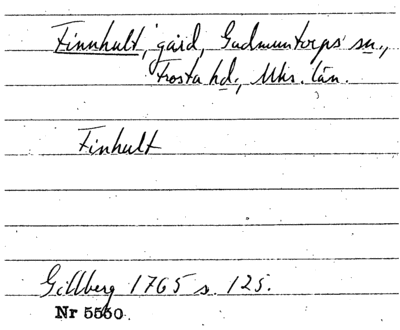 Finnhult, gård, Gudmuntorps sn.,
Frosta hd., Mhs. län.
Finhult
Gillberg 1765 s. 125.
Nr 5550.